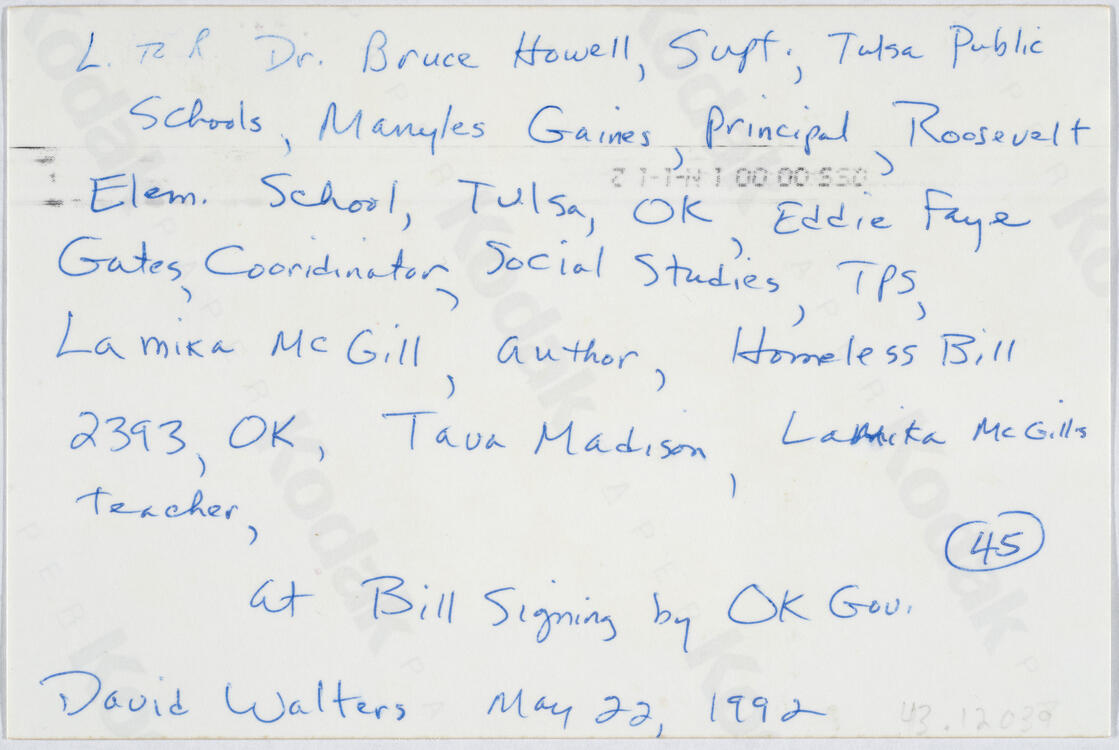 L. To R Dr. Bruce Howell, Supt., Tulsa Public
Schools, Manyles Gaines, Principal, Roosevelt
Elem. School, Tulsa, OK, Eddie Faye
Gates, Cooridinator, Social Studies, TPS,
Lamika McGill, author, Homeless Bill
2393, OK, Tava Madison, Lamika McGills
teacher,
45
at Bill Signing by OK Gov.
David Walters May 22, 1992
Kodak